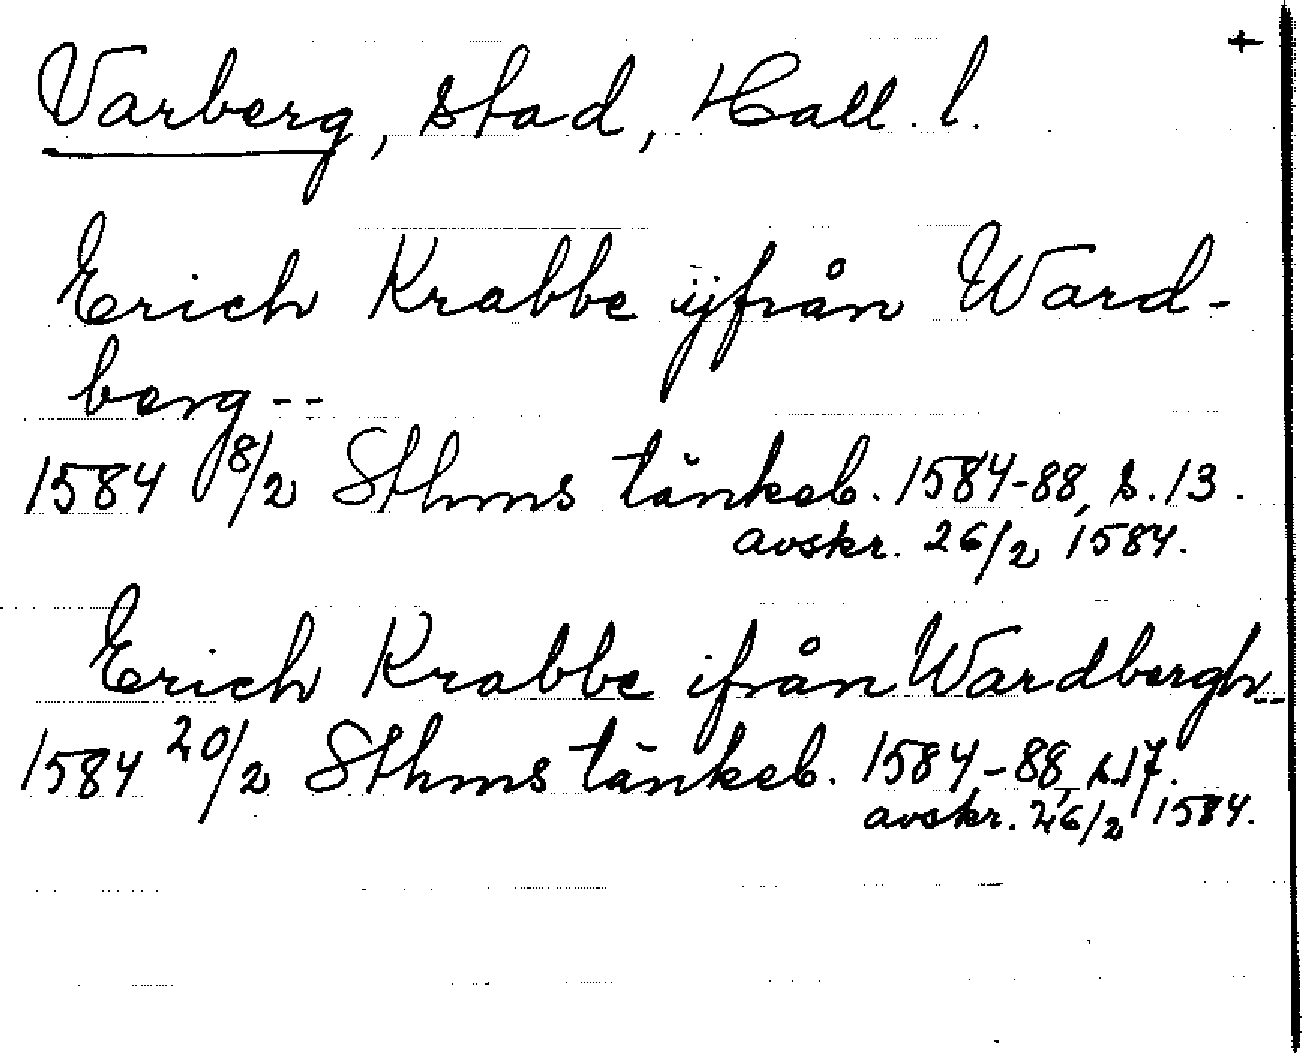 Varberg, stad, Hall. l.
+
Erich Krabbe ijfrån Ward-
berg --
1584 8/2 Sthms tänkeb. 1584-88, s. 13.
avskr. 26/2 1584.
Erich Krabbe ifrån Wardbergh --
1584 20/2 Sthms tänkeb. 1584-88, s. 17.
avskr. 26/2 1584.